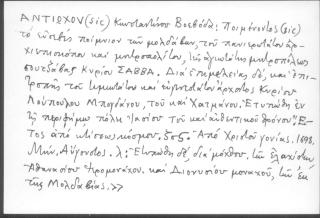 ΑΝΤΙΡΧΟΥ (sic) Κωνσταντίνου Βοεβόδα: Ποιμένοντος (sic)
τὸ εὐσεβὲς ποίμνιον τῶν μολδάβων, τοῦ πανιερωτάτου ἀρ-
χιεπισκόπου καὶ μητροπολίτου, τῆς ἁγιωτάτης μητροπόλεως
σουτζάβας Κυρίου ΣΑΒΒΑ. Διὰ ἐπιμελείας δέ, καὶ ἐπι-
τροπῆς τοῦ τιμιωτάτου καὶ εὐγενεστάτου ἄρχοντος Κυρίου
Λούπουλου Μπογδάνου, τοῦ καὶ Χατμάνου. Ἐτυπώθη ἐν
τῇ περιφήμῳ πόλει Ἰασίου τοῦ καὶ αὐθεντικοῦ θρόνου. Ἔ-
τος ἀπὸ κτίσεως κόσμου. ζσς. Ἀπὸ Χριστοῦ γονίας. 1698.
Μην. Αὔγουστος. λ; Ἐτυπώθη δέ, διὰ μόχθου, τῶν ἐλαχίστων
Ἀθανασίου Ἱερομονάχου. καὶ Διονυσίου μοναχοῦ, τῶν ἐκ
τῆς Μολδαβίας.>>